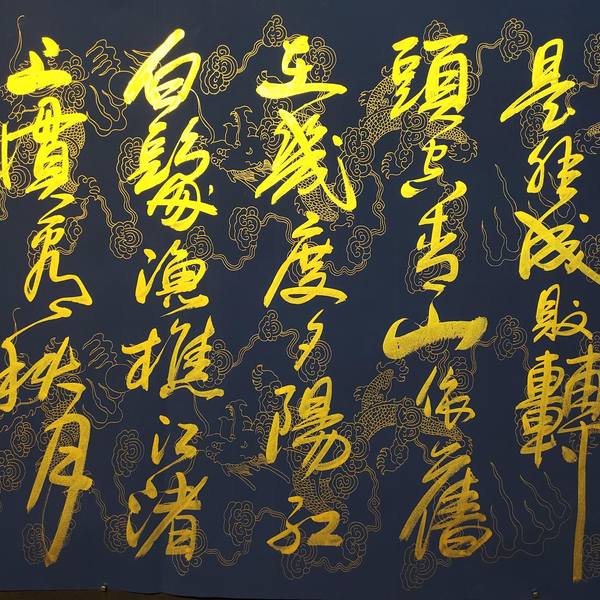 是非成敗轉
頭空青山依舊
在幾度夕陽紅
白髮漁樵江渚
上慣看秋月